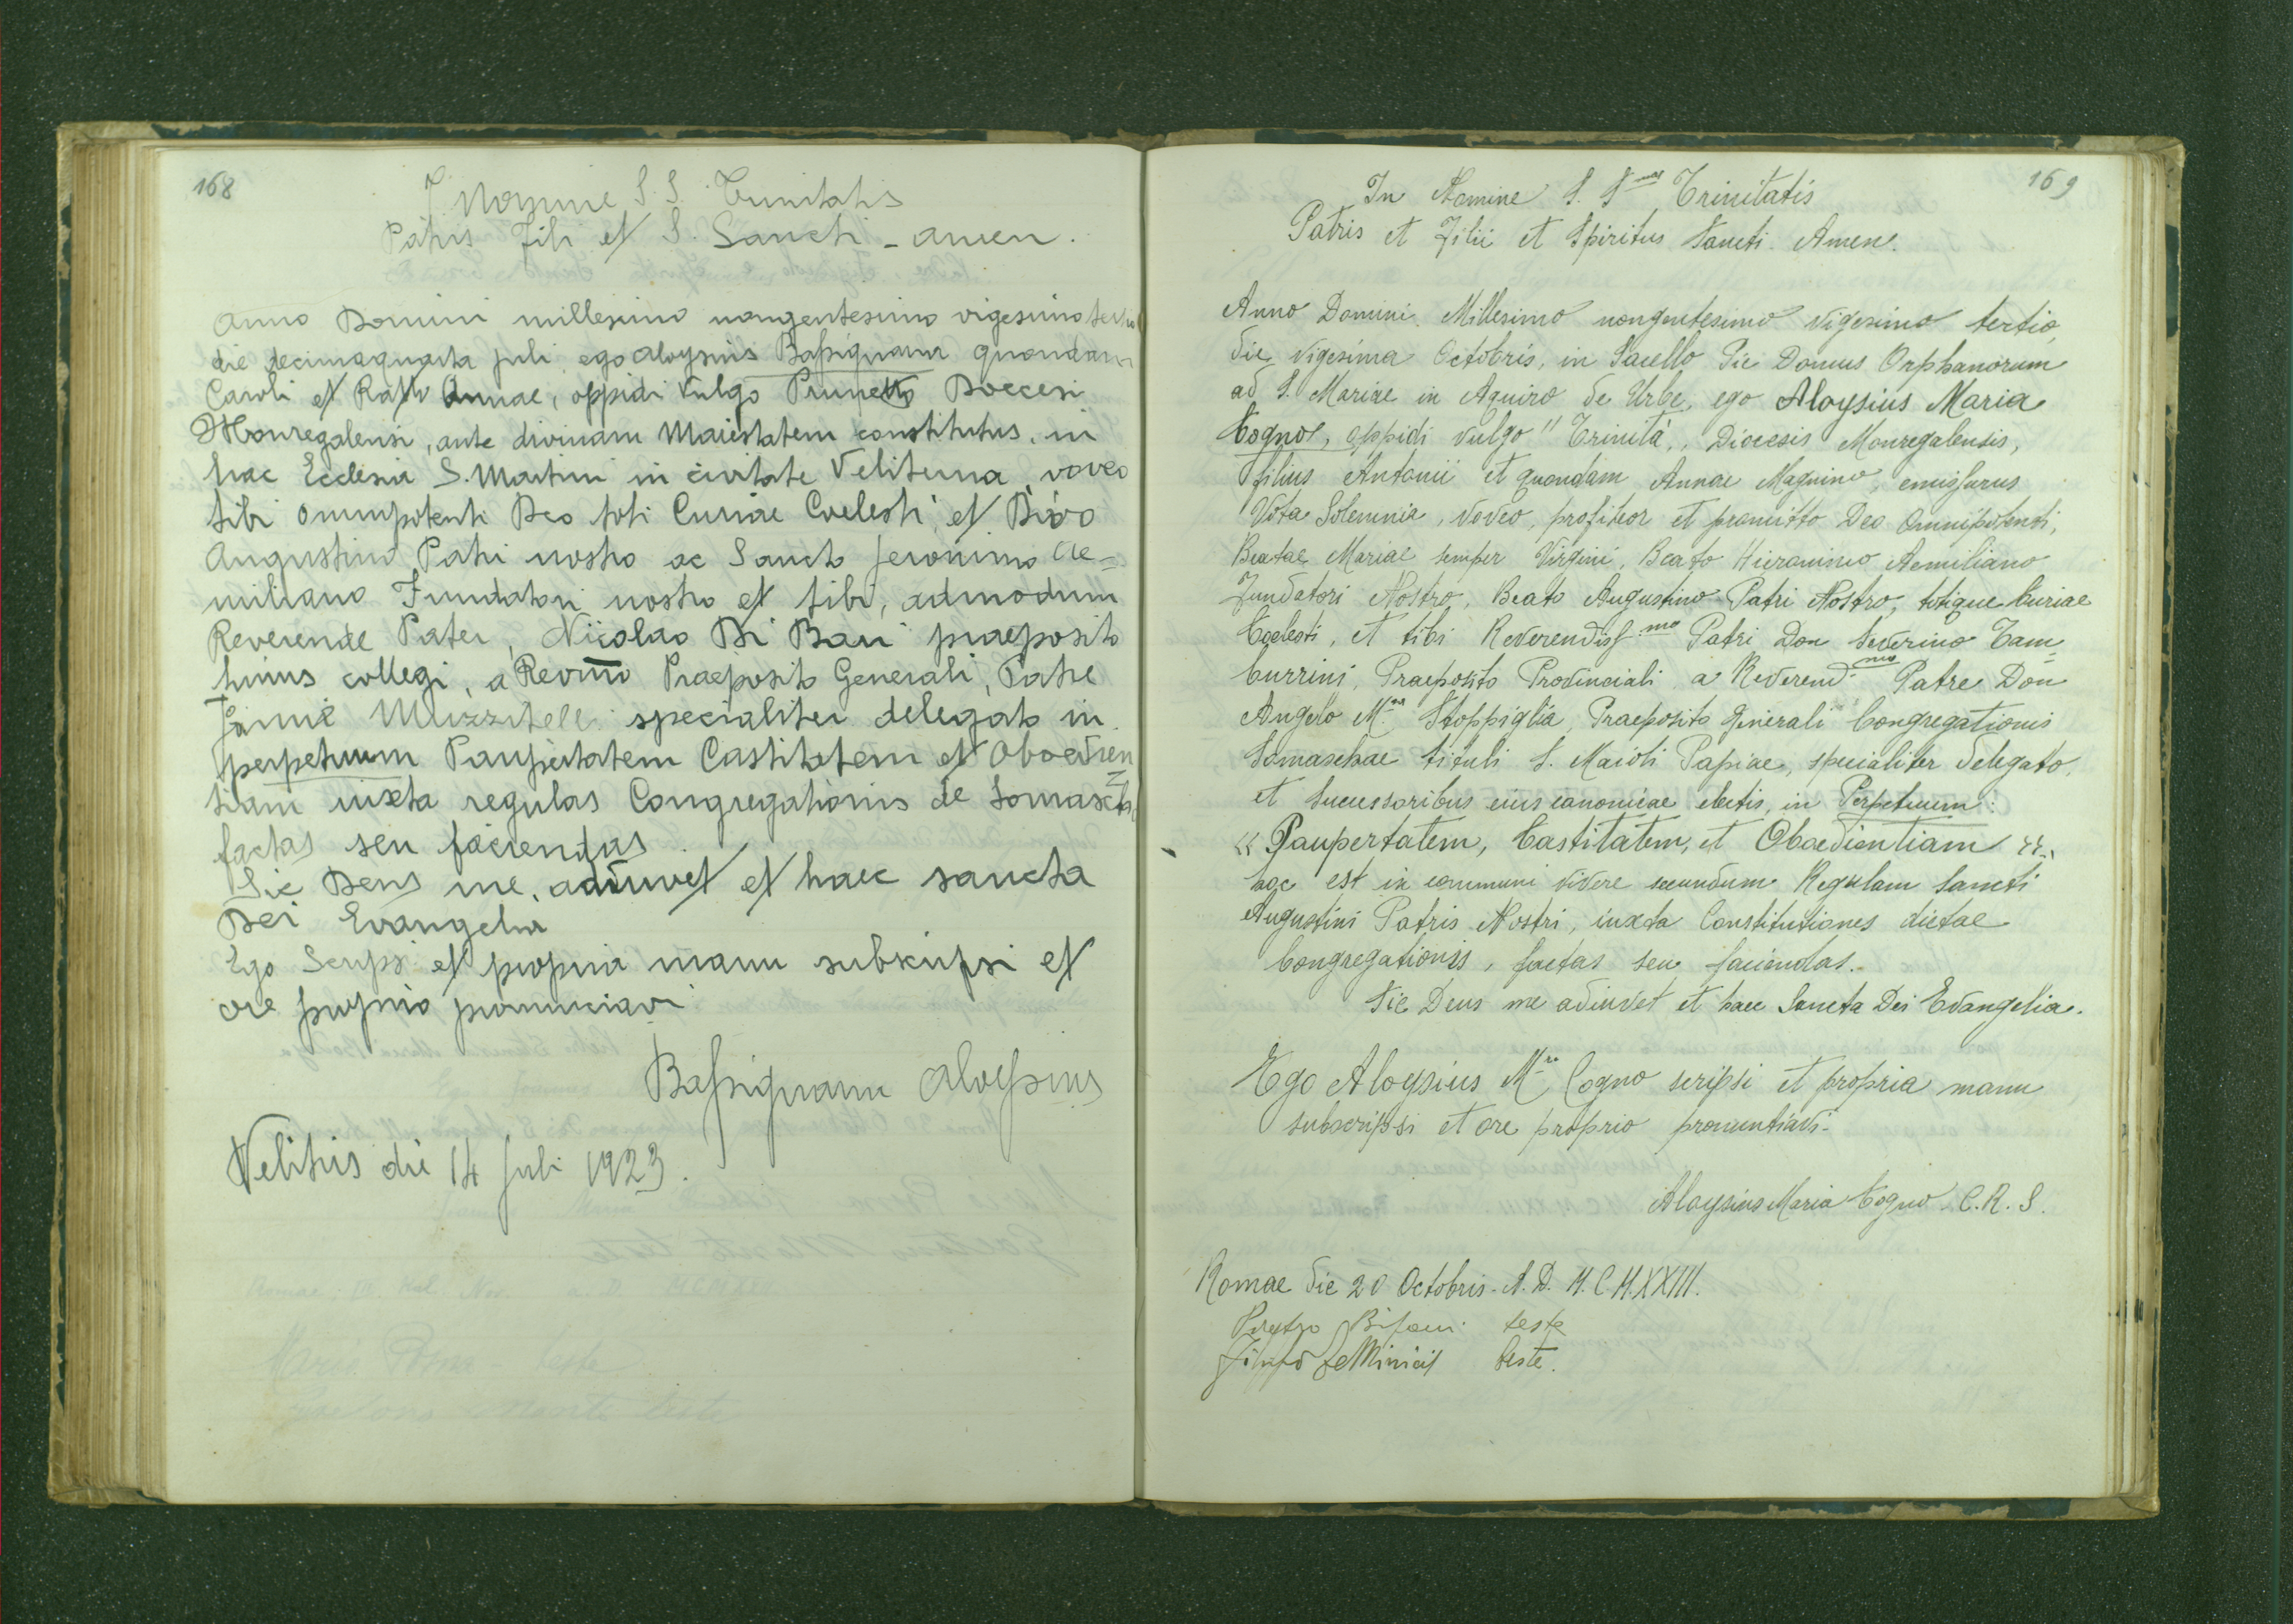 168
I. Nomine S. S. Trinitatis
Patris Fili et S. Sancti - Amen.
Anno Domini millesimo nongentesimo vigesimo tertio
die decimaquarta juli ego Aloysius Bassignana quondam
Caroli et Annae, oppidi vulgo Prunetto Doecesi
Monregalensi, ante divinam Maiestatem constitutus, in
hac Ecclesia S. Martini in civitate Veliterna, voveo
tibi omnipotenti Deo toti Curiae Coelesti, et Divo
Augustino Patri nostro ac Sancto Jeronimo Ae=
miliano Fundatori nostro et tibi, admodum
Reverende Pater, Nicolao Di Bari praeposito
huius collegi, a Revmo Praeposito Generali, Patre
Janne Muzzitelli specialiter delegato in
perpetuum Paupertatem Castitatem et Oboedien=
tiam iuxta regulas Congregationis de Somascha
factas seu faciendas
Sic Deus me adiuvet et haec sancta
Dei Evangelia
Ego Scripsi et propria manu subscripsi et
ore proprio pronunciavi
Bassignana Aloysius
Velitris die 14 Juli 1923.
169
In Nomine S. S.mae Trinitatis
Patris et Filii et Spiritus Sancti. Amen.
Anno Domini. Millesimo nongentesimo vigesimo tertio,
die vigesima Octobris, in Sacello Pie Domus Orphanorum
ad S. Mariae in Aquiro de Urbe, ego Aloysius Maria
Cogno, oppidi vulgo "Trinità,, Diocesis Monregalensis,
filius Antonii et quondam Annae Magnino, emissurus
Vota Solemnia, voveo, profiteor et promitto Deo Omnipotenti,
Beatae Mariae semper Virgini, Beato Hieronimo Aemiliano
Fundatori Nostro, Beato Augustino Patri Nostro, totique Curiae
Coelesti, et tibi Reverendiss.mo Patri Don Severino Tam=
burrini, Praeposito Provinciali a Reverend.mo Patre Don
Angelo M.a Stoppiglia, Praeposito Generali Congregationis
Somaschae tituli S. Maioli Papiae, specialiter delegato,
et Successoribus eius canonicae electis, in Perpetuum:
« Paupertatem, Castitatem, et Oboedientiam »,
hoc est in communi vivere secundum Regulam Sancti
Augustini Patris Nostri, iuxta Constitutiones dictae
Congregationis, factas seu faciendas.
Sic Deus me adiuvet et haec Sancta Dei Evangelia.
Ego Aloysius M.a Cogno scripsi et propria manu
subscripsi et ore proprio pronuntiavi.
Aloysius Maria Cogno C. R. S.
Romae die 20 Octobris. A. D. M.C.M.XXIII.
teste
teste.